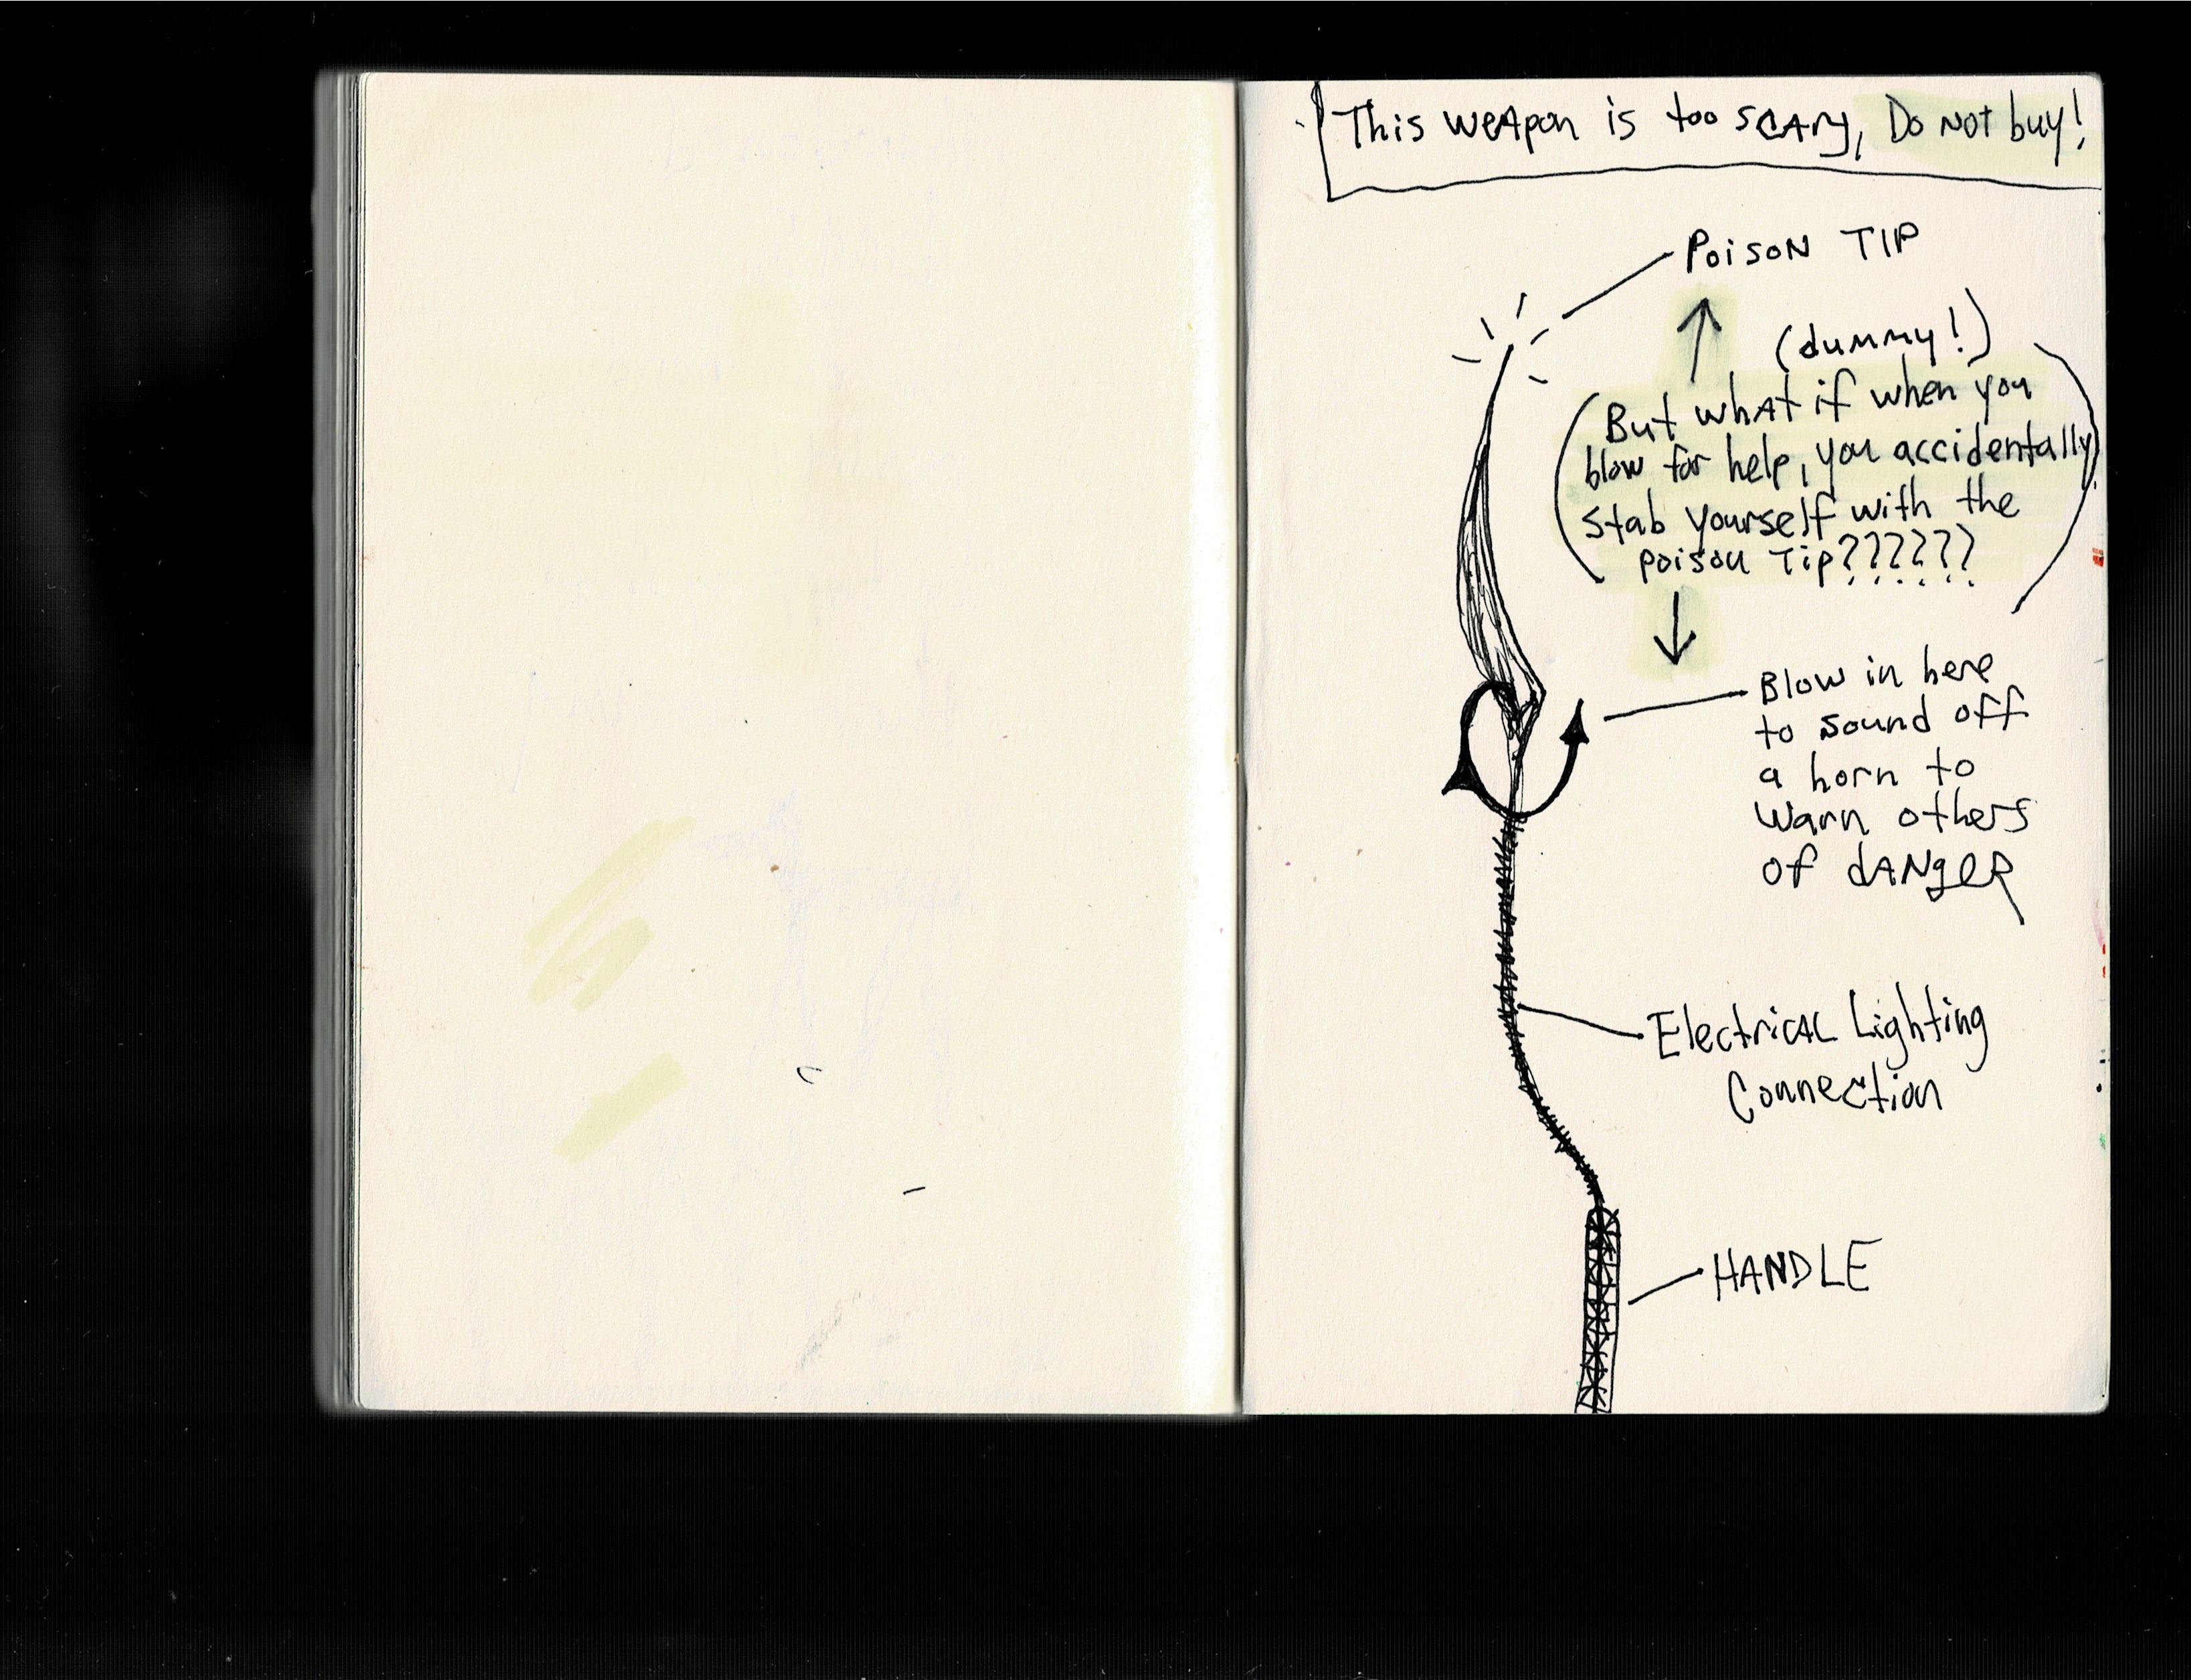 This weapon is too scary, Do not buy!
Poison TIP
(dummy!)
(But what if when you
blow for help, you accidentally
stab yourself with the
poison Tip??????)
Blow in here
to sound off
a horn to
warn others
of dANgeR
Electrical Lighting
Connection
HANDLE